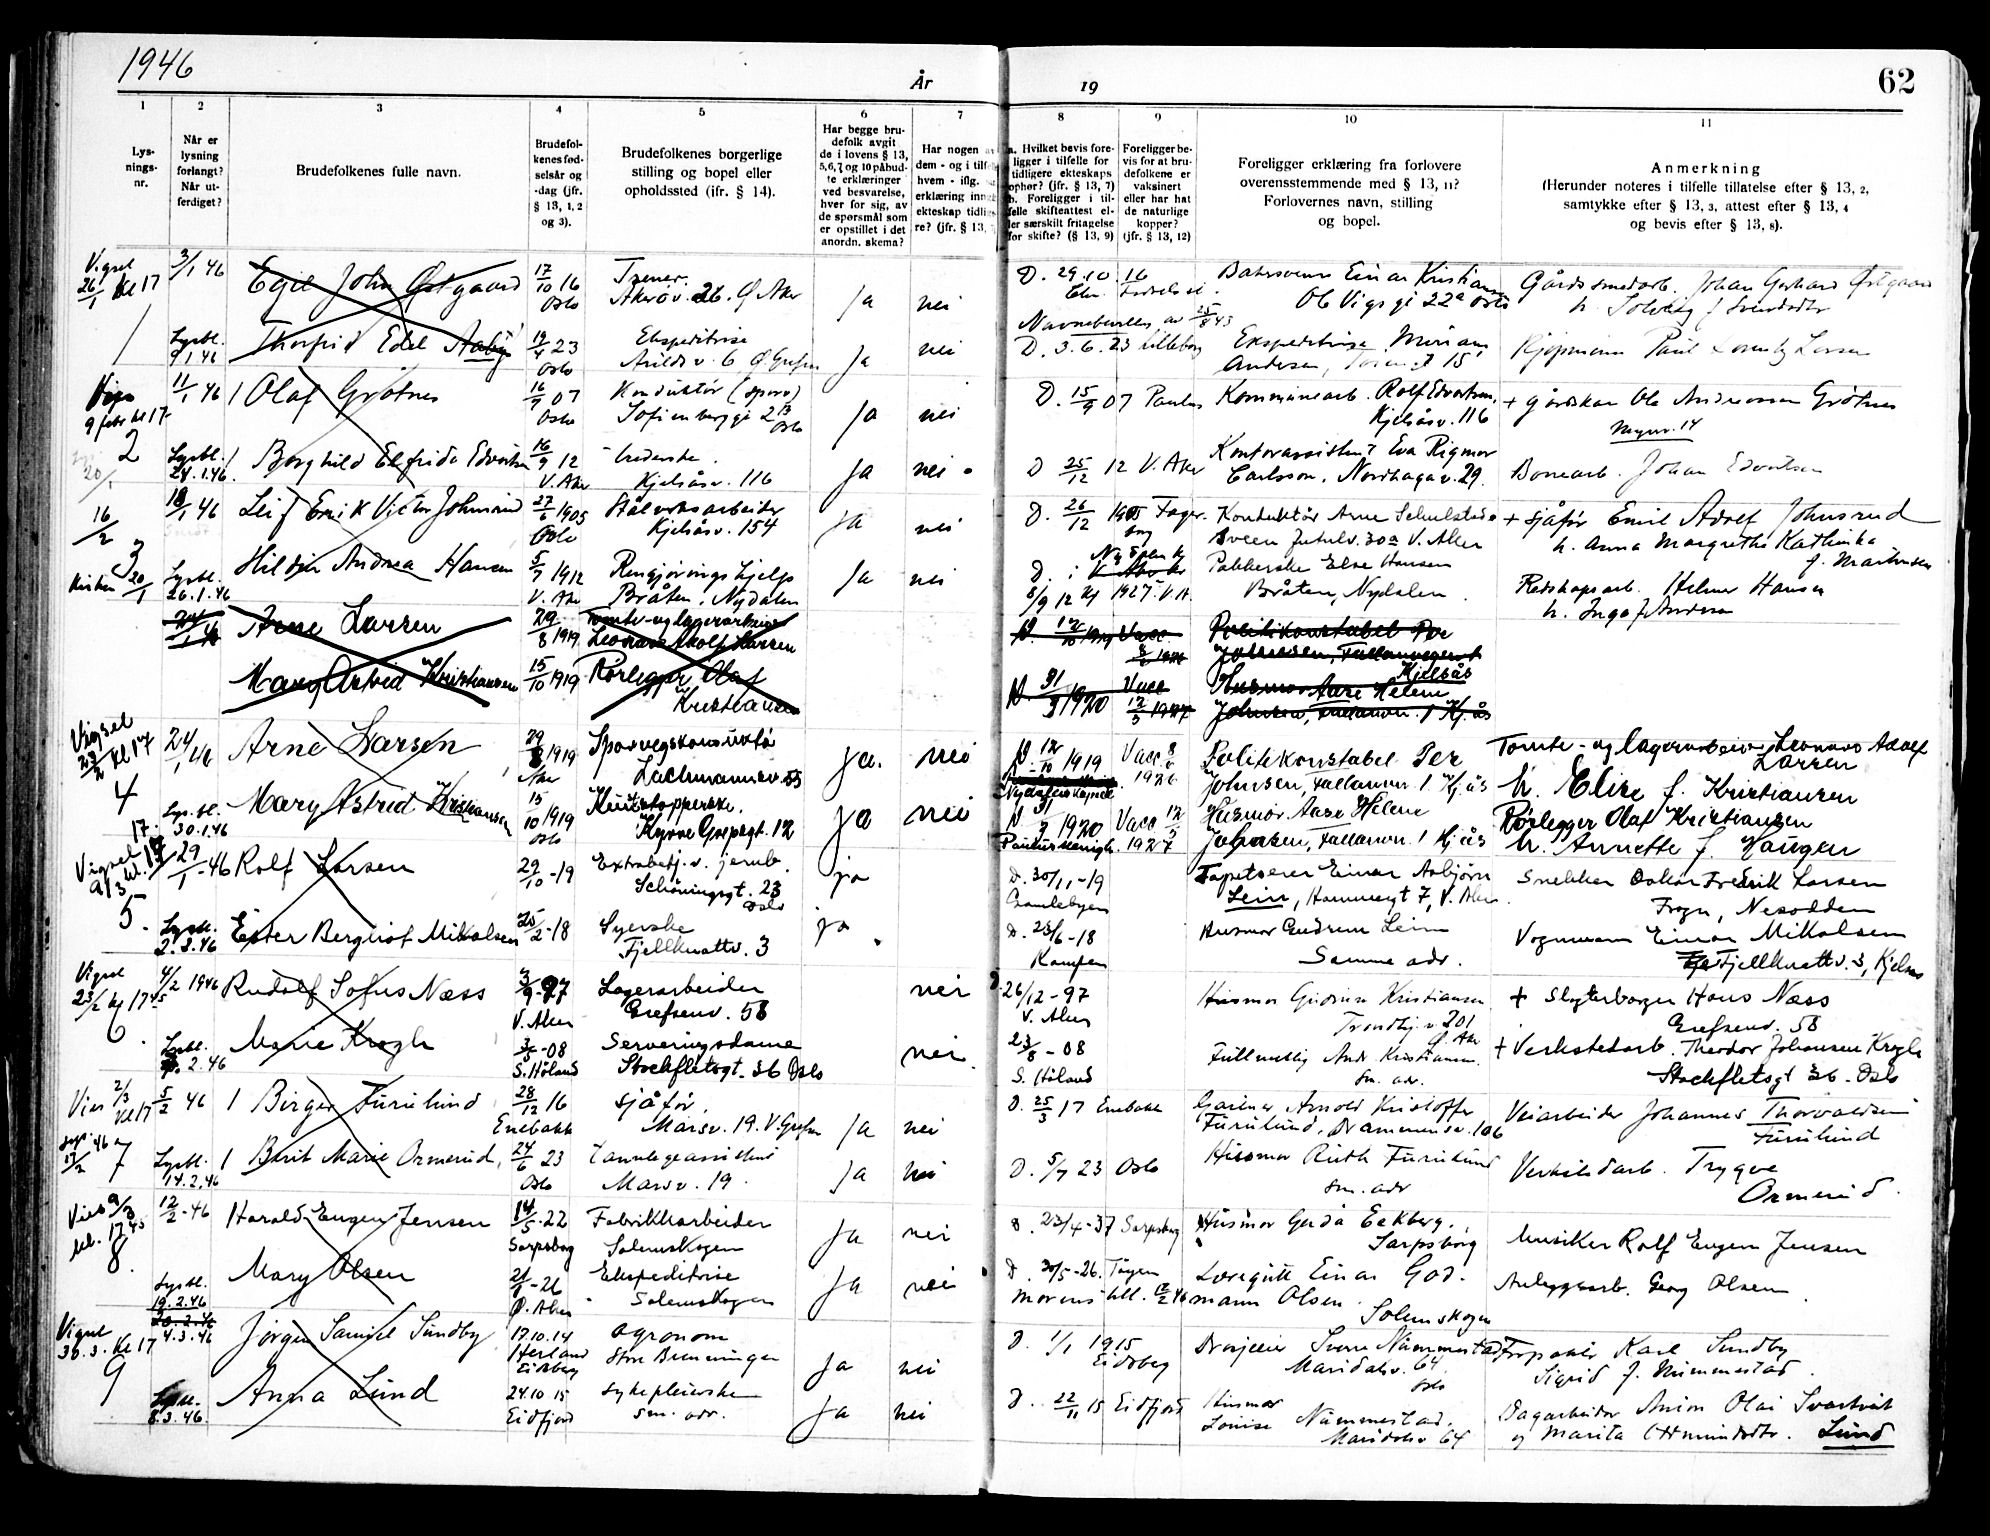 1946
År
19
62
1
2
3
4
5
6
7
8
9
10
11
Lys-
nings-
nr.
Når er
lysning
forlangt?
Når ut-
ferdiget?
Brudefolkenes fulle navn.
Brudefol-
kenes fød-
selsår og
-dag (jfr.
§ 13, 1, 2
og 3).
Brudefolkenes borgerlige
stilling og bopel eller
opholdssted (ifr. § 14).
Har begge bru-
defolk avgit
de i lovens § 13,
5,6,7 og 10 påbud-
te erklæringer
ved besvarelse,
hver for sig, av
de spørsmål som
er opstillet i det
anordn. skema?
Har nogen a
dem - og i tilfe
hvem - iflg.
erklæring inng
ekteskap tidlig
re? (jfr. § 13,
a. Hvilket bevis fore-
ligger i tilfelle for
tidligere ekteskaps
ophør? (jfr. § 13, 7)
b. Foreligger i til-
felle skifteattest el-
ler særskilt fritagelse
for skifte? (§ 13, 9)
Foreligger be-
vis for at bru-
defolkene er
vaksinert
eller har hat
de naturlige
kopper?
(jfr. § 13, 12)
Foreligger erklæring fra forlovere
overensstemmende med § 13, 11?
Forlovernes navn, stilling
og bopel.
Anmerkning
(Herunder noteres i tilfelle tillatelse efter § 13, 2,
samtykke efter § 13, 3, attest efter § 13, 4
og bevis efter § 13, 8).
Vigsel 26/1 kl 17
1
3/1 46
Egil John Østgaard
17/10 16
Oslo
Trener
Akersv. 26. Ø Aker
Ja
nei
D. 29.10.16
Gårdssmedarb. Johan Gerhard Østgaard
Lysbl.
9.1.46
Thorfrid Edel Aaby
19/4 23
Oslo
Ekspeditrise
Arilds v. 6 Ø. Grefsen
Ja
nei
D. 3.6.23 Lilleborg
Ekspeditrise Miriam
Kjøpmann Paul Lorentz Larsen
9 febr kl 17
2
11/1 46
Olaf Grøtnes
16/7 07
Oslo
Konduktør (sporv)
Sofienberggt 2
Oslo
Ja
nei
D. 15/9 07 Paulus
Kommunearb. Rolf Edvartsen,
Kjelsåsv. 116
+ gårdskar Ole Andreassen Grøtnes
20/1
Lysbl.
24.1.46.
Borghild Elfrida Edvartsen
16/9 12
V. Aker
Kjelsåsv. 116
Ja
nei
D 25/12 12 V. Aker
Kontorassistent Eva Rigmor
Carlsson, Nordhagav. 29.
Bonearb. Johan Edvartsen
16/2
3
18/1 46
Leif Erik Victor Johnsrud
27/6 1905
Oslo
Stålverksarbeider
Kjelsåsv. 154
Ja
nei
D. 26/12 1905 Fager-
borg
Konduktør Arne Schulstad
Sveen Jutulv. 30a V. Aker
+ sjåfør Emil Adolf Johnsrud
h. Anna Margrethe Kathinka
f. Martinsen
Kirken 20/1
Lysbl.
26.1.46
Hildur Andrea Hansen
5/7 1912
V. Aker
Rengjøringshjelp
Bråten, Nydalen
Ja
nei
8/9 12 Kj 1927. V.A.
Pakkerske Else Hansen
Bråten, Nydalen
Redskapsarb. Helmer Hansen
h. Inga f. Andersen
24/1 46
Arne Larsen
29/8 1919
Tomte- og lagerarbeider
Leonard Adolf Larsen
D. 12/10 1919 Vacc.
Politikonstabel Per
Johnsen, Fallanveien 1
Kjelsås
Mary Astrid Kristiansen
15/10 1919
Rørlegger Olaf
Kristiansen
D 31/3 1920
Vacc
12/5 1927
Husmor Aase Helene
Johnsen, Fallanvn. 1 Kj.ås
Vigsel
23/2 kl 17
4
24/1 46
Arne Larsen
29/8 1919
Aker
Sporvegskonduktør
Lachmannsv. 55
ja.
nei
D 12/10 1919
Nydalens kapell
Vacc 8/6
1926
Politikonstabel Per
Johnsen, Fallanvn. 1 Kj.ås
Tomte- og lagerarbeider Leonard Adolf
Larsen
h. Elise f. Kristiansen
Lys.bl.
30.1.46
Mary Astrid Kristiansen
15/10 1919
Oslo
Kunststopperske,
Kyrre Grepsgt. 12
ja
nei
D 31/3 1920
Paulus menigh.
Vacc 12/5
1927
Husmor Aase Helene
Johnsen, Fallanvn. 1 Kj.ås
Rørlegger Olaf Kristiansen
h. Annette f. Haugen
Vigsel
9/3 kl. 17
5.
29/1-46
Rolf Larsen
29/10-19
Extrabetj. v. jernb.
Schöningsgt. 23
Oslo
ja
D. 30/11-19
Gamlebyen
Tapetserer Einar Asbjørn
Leim, Hammergt 7, V. Aker
Snekker Oskar Fredrik Larsen
Frogn, Nesodden
Lysbl.
2.3.46
Ester Bergliot Mikalsen
25/2-18
Syerske
Fjellknattv. 3
ja
D. 23/6-18
Kampen
Husmor Gudrun Leim
Samme adr.
Vognmann Einar Mikalsen
Fjellknattv. 3, Kjelsås
Vigsel
23/2 kl 17 45
6.
4/2 1946
Rudolf Sofus Næss
3/9-97
V. Aker
Lagerarbeider
Grefsenv. 58
nei
D. 26/12-97
V. Aker
Husmor Gudrun Kristiansen
Trondhj.v. 201
Ø. Aker
+ Slagterborger Hans Næss
Grefsenv. 58
Lysbl.
.2.46
Marie Krogh
3/5-08
S. Høland
Serveringsdame
Stockfletsgt. 36 Oslo
nei.
23/8-08
S. Høland
Fullmektig Andr. Kristiansen
sm. adr.
+ Verkstedarb. Theodor Johansen Krogh
Stockfletsgt 36. Oslo
Vies 2/3 kl 17
7
5/2 46
Birger Furulund
28/12 16
Enebakk
sjåfør,
Marsv. 19. V Grefsen
Ja
nei
D. 25/3 17 Enebakk
Gartner Arnold Kristoffer
Furulund, Drammensv. 106
Veiarbeider Johannes Thorvaldsen
Furulund
17/2
Lysbl.
14.2.46
Berit Marie Ormerud
24/6 23
Oslo
Tannlegeassistent
Marsv. 19.
Ja
nei
D. 5/7 23 Oslo
Husmor Ruth Furulund
sm. adr
Verkstedarb. Trygve
Ormerud.
Vies 9/3
kl. 17 45
8.
12/2-46
Harald Eugen Jensen
14/5-22
Sarpsborg
Fabrikkarbeider
Solemskogen
Ja
nei
D. 23/4-37 Sarpsborg
Husmor Gerda Eekberg.
Sarpsborg
Musiker Rolf Eugen Jensen
Lysbl.
19.2.46
Mary Olsen
-26
Ø. Aker
Ekspeditrise
Solemskogen
Ja
nei
D 30/5-26. Tøyen
Læregutt Einar God-
mann Olsen.
Solemskogen
Anleggsarb. Georg Olsen
Vigsel
30.3. kl 17
9
4.3.46
Jørgen Samuel Sundby
17.10.14
Herland
Eidsberg
agronom
Store Brenningen
Ja
nei
D. 1/1 1915
Eidsberg
Drosjeeier Sverre Nummestad
Maridalsv. 64
Oslo
Forpakter Karl Sundby
Sigrid f. Nummestad.
Lysbl.
8.3.46
Anna Lund
24.10 15
Eidfjord
Sykepleierske
sm. adr.
Ja
nei
D. 22/11 15 Eidfjord
Husmor
Louise Nummestad.
Maridalsv 64
Dagarbeider Anton Olai Svartveit
og Marita Osmundsdtr. Lund